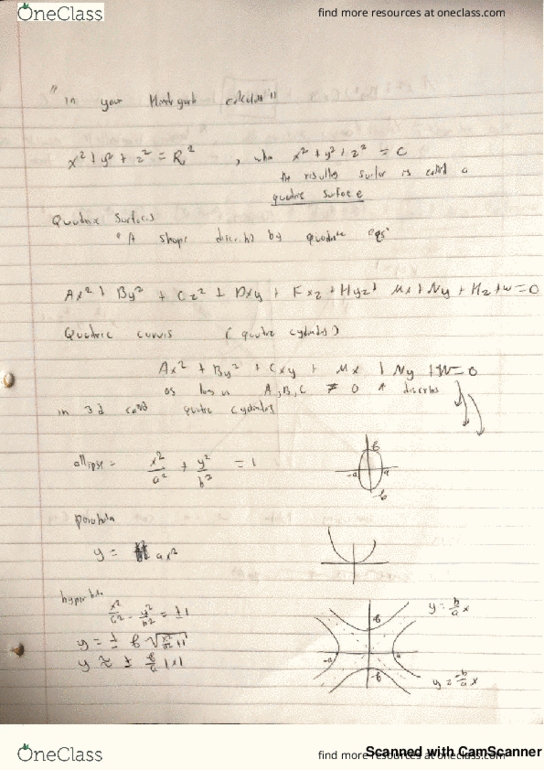 OneClass
find more resources at oneclass.com
"in your
x² + y² + z² = R² , when x² + y² + z² = C
the resulting surface is called a
quadric surface
Quadric Surfaces
"A shape described by quadratic eqs"
Ax² + By² + Cz² + Dxy + Fxz + Hyz + Mx + Ny + Hz + w = 0
Quadric curves (quadric cylinders)
Ax² + By² + Cxy + Mx + Ny + W = 0
as long as A, B, C ≠ 0 it describes
in 3d called quadric cylinders
ellipse = x²/a² + y²/b² = 1
b
-a a
-b
parabola
y = ax²
hyperbola
x²/a² - y²/b² = ±1
y = b/a x
b
-a a
-b
y ≈ ± b/a |x|
y = -b/a x
OneClass
find more resources at oneclass.com
Scanned with CamScanner